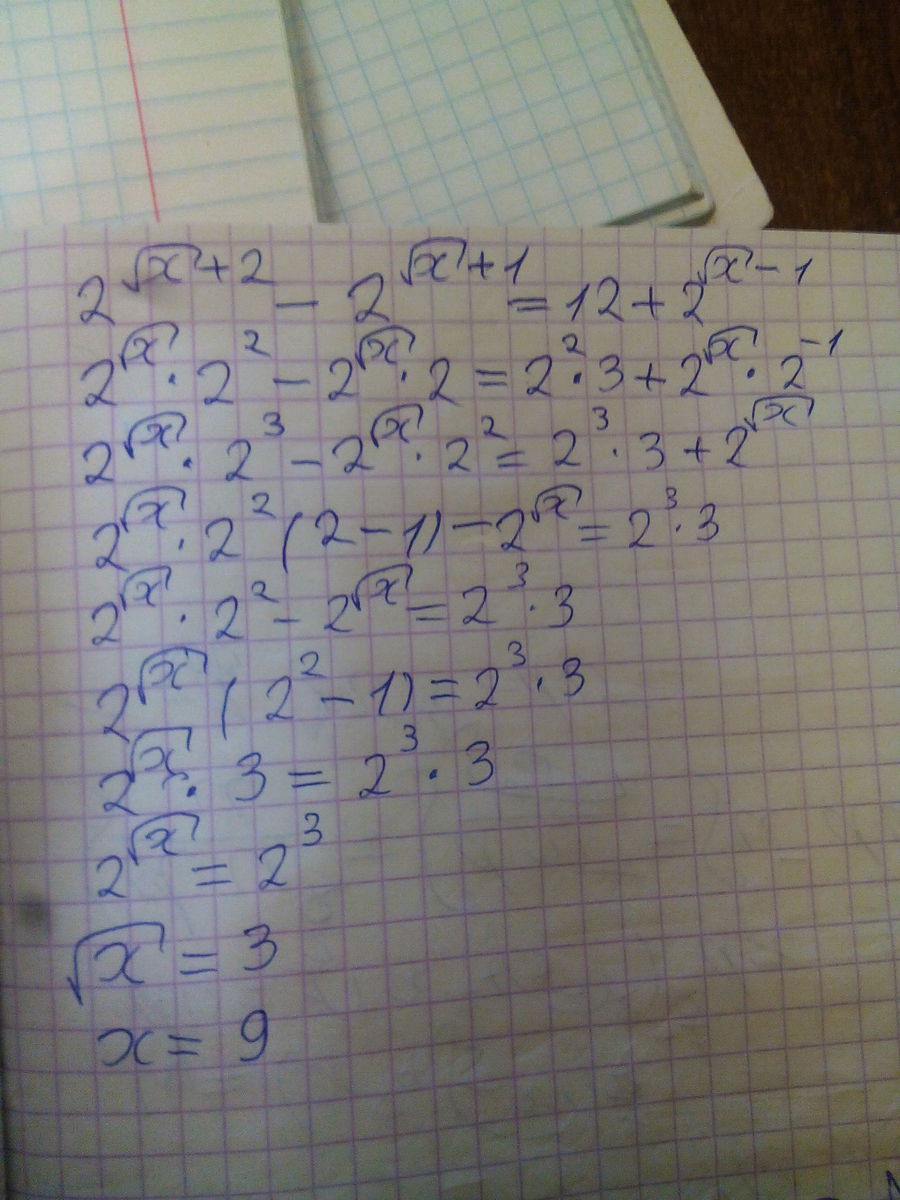 2^{√x+2} − 2^{√x+1} = 12 + 2^{√x−1}
2^{√x} · 2^2 − 2^{√x} · 2 = 2^2 · 3 + 2^{√x} · 2^{−1}
2^{√x} · 2^3 − 2^{√x} · 2^2 = 2^3 · 3 + 2^{√x}
2^{√x} · 2^2 (2 − 1) − 2^{√x} = 2^3 · 3
2^{√x} · 2^2 − 2^{√x} = 2^3 · 3
2^{√x} (2^2 − 1) = 2^3 · 3
2^{√x} · 3 = 2^3 · 3
2^{√x} = 2^3
√x = 3
x = 9